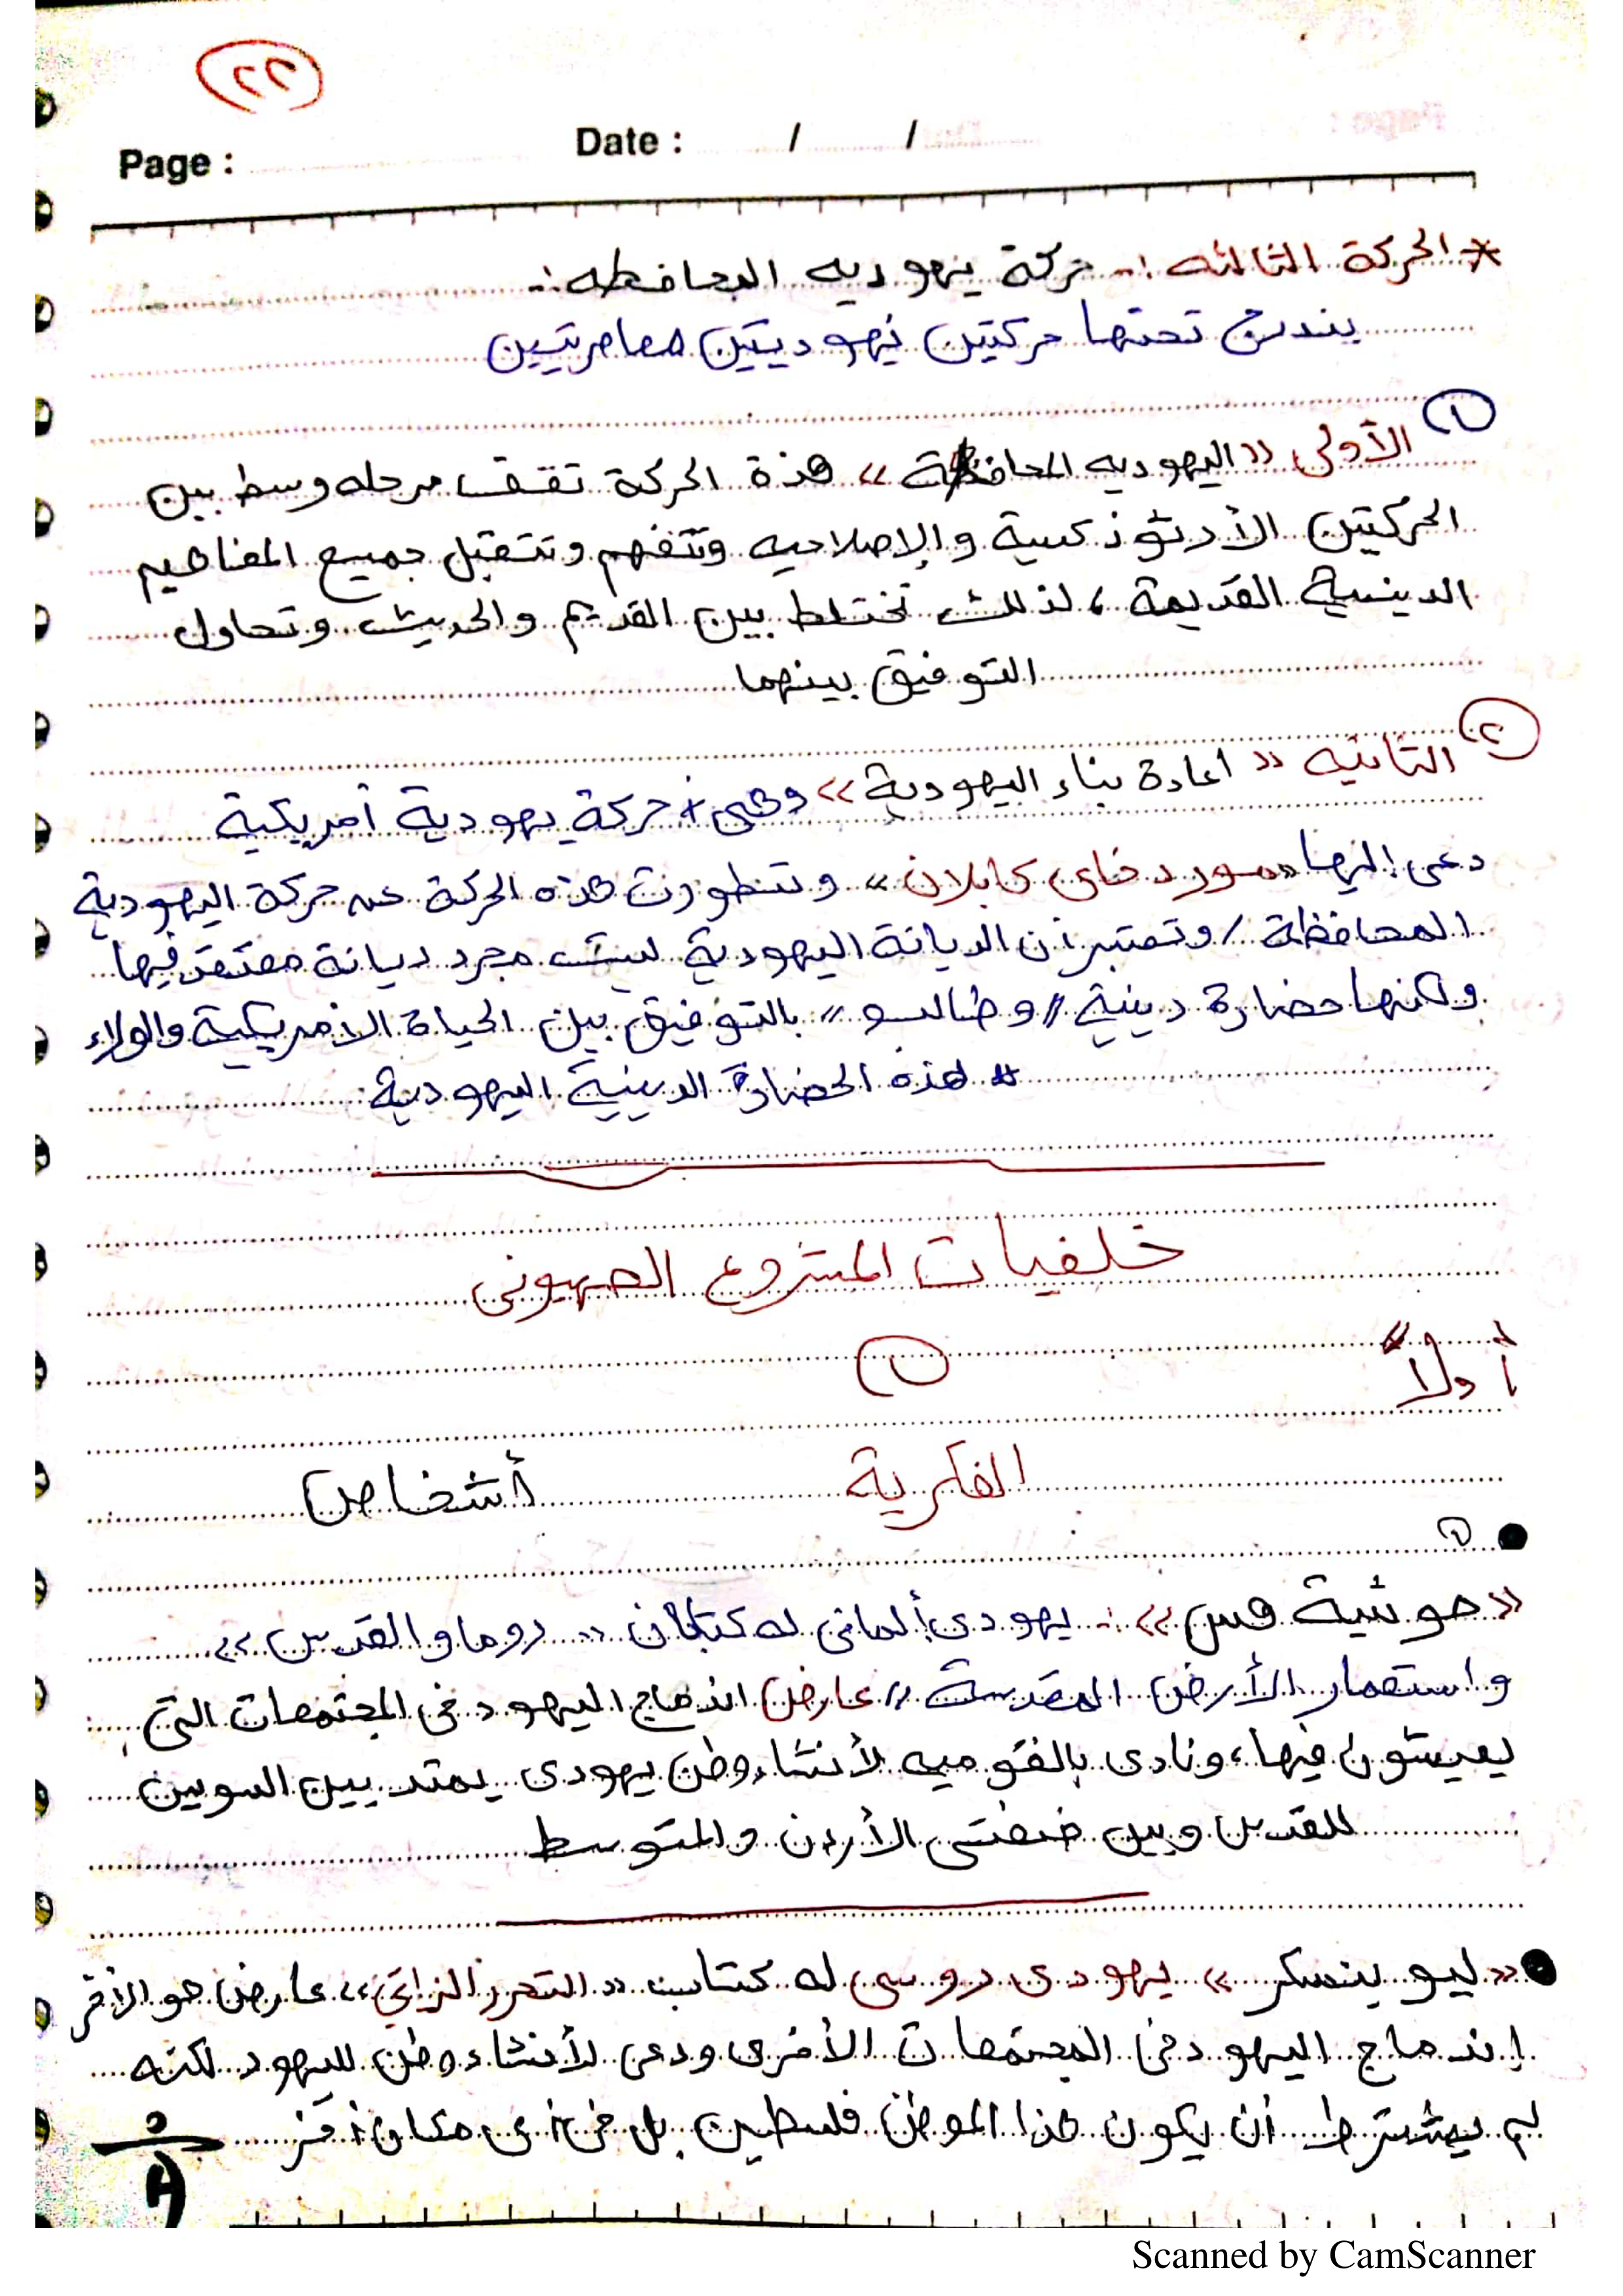 ٢٢
Page : Date : / /
* الحركة الثالثه :- حركة يهوديه المحافظه :-
يندرج تحتها حركتين يهوديتين معاصريتين
١
الأولى «اليهوديه المحافظة» هذة الحركة تقف مرحله وسط بين
الحركتين الأرثوذكسية والإصلاحيه وتتفهم وتتقبل جميع المفاهيم
الدينية القديمة، لذلك تختلط بين القديم والحديث وتحاول
التوفيق بينهما
٢
الثانيه « اعادة بناء اليهودية» وهى حركة يهودية أمريكية
دعى إليها «موردخاى كابلان» وتطورت هذه الحركة عن حركة اليهودية
المحافظة / وتعتبر أن الديانة اليهودية ليست مجرد ديانة معتقد فيها
ولكنها حضارة دينية // وطالب // بالتوفيق بين الحياة الامريكية والولاء
# هذه الحضارة الدينية اليهودية
خلفيات المشروع الصهيونى
١
أولاً
الفكرية أشخاص
١
«موشية هس» :- يهودى ألمانى له كتابان « روما والقدس »
واستعمار الأرض المقدسة // عارض اندماج اليهود فى المجتمعات التى
يعيشون فيها، ونادى بالقوميه لأنشاء وطن يهودى يمتد بين السويس
للقدس وبين ضفتى الأردن والمتوسط
«ليو بنسكر» يهودى روسى له كتاب «التحرر الزاتى» عارض هو الأخر
إندماج اليهود فى المجتمعات الأخرى ودعى لأنشاء وطن لليهود لكنه
لم يشترط أن يكون هذا الموطن فلسطين بل فى أى مكان أخر
Scanned by CamScanner